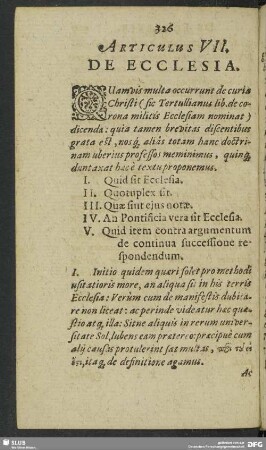 326
ARTICULUS VII.
DE ECCLESIA.
QUamvis multa occurrunt de curia
Christi (sic Tertullianus lib. de co-
rona militis Ecclesiam nominat)
dicenda: quia tamen brevitas discentibus
grata est, nosq́; aliàs totam hanc doctri-
nam uberius professos meminimus, quinq;
duntaxat hac è textu proponemus.
I. Quid sit Ecclesia.
II. Quotuplex sit.
III. Quæ sint ejus notæ.
IV. An Pontificia vera sit Ecclesia.
V. Quid item contra argumentum
de continua successione re-
spondendum.
I. Initio quidem quæri solet pro methodi
usitatioris more, an aliqua sit in his terris
Ecclesia: Verùm cum de manifestis dubita-
re non liceat: ac perinde videatur hac quæ-
stio atq; illa: Sitne aliquis in rerum univer-
sitate Sol, lubens eam prætereo: præcipuè cum
alij causas protulerint sat multas,
itaq; de definitione agamus.
Ac
SLUB
DFG